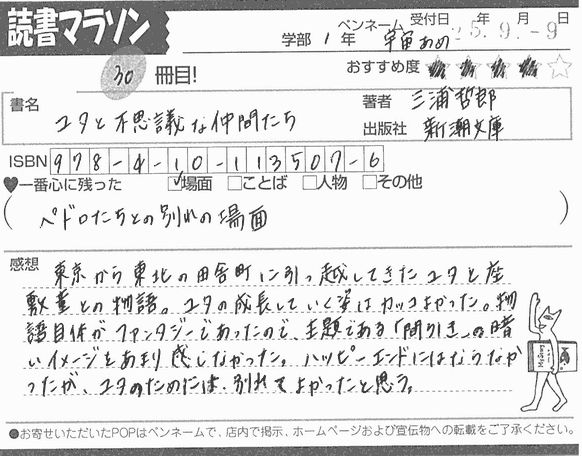 読書マラソン
学部 1 年 ペンネーム 宇宙あめ 受付日 25.9.-9 年 月 日
30 冊目!
おすすめ度 ★ ★ ★ ★ ☆
書名 ユタと不思議な仲間たち
著者 三浦哲郎
出版社 新潮文庫
ISBN 978-4-10-113507-6
♥一番心に残った ☑場面 □ことば □人物 □その他
(ペドロたちとの別れの場面)
感想 東京から東北の田舎町に引っ越してきたユタと座
敷童との物語。ユタの成長していく姿はカッコよかった。物
語自体がファンタジーであったので、主題である「間引き」の暗
いイメージをあまり感じなかった。ハッピーエンドにはならなか
ったが、ユタのためには、別れてよかったと思う。
●お寄せいただいたPOPはペンネームで、店内で掲示、ホームページおよび宣伝物への転載をご了承ください。